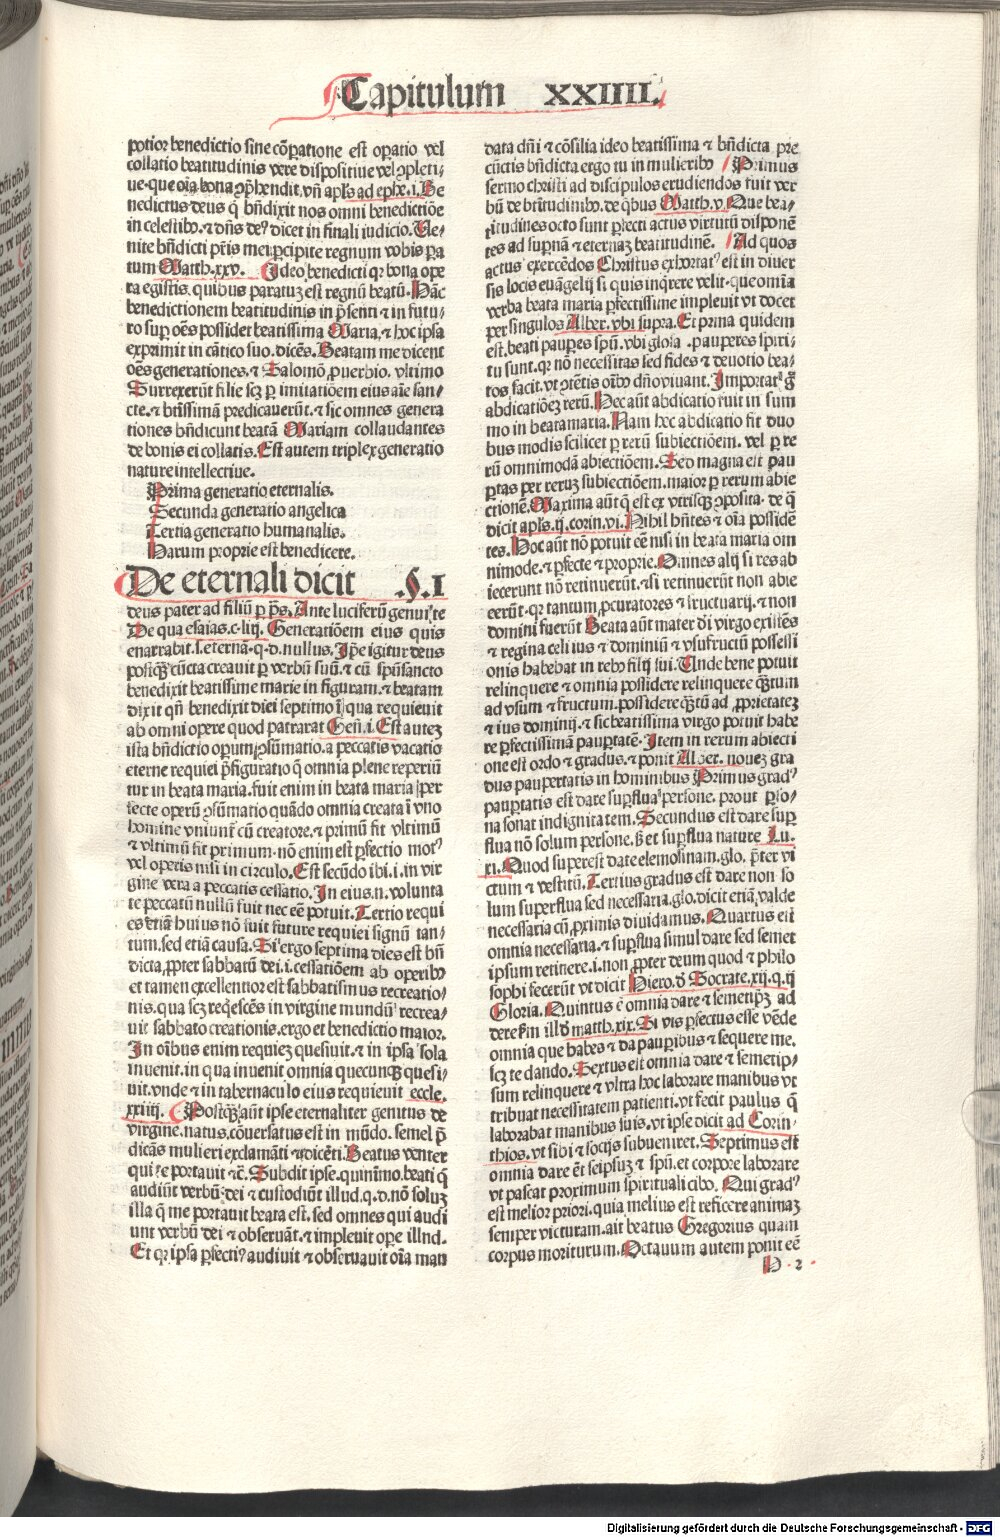 Capitulum XXIIII.
potior benedictio sine cōꝑatione est oꝑatio vel
collatio beatitudinis vere dispositiue vel ꝯpleti-
ue. que oīa bona ꝯp̄hendit. vn̄ apl̄s ad ephe. i. Be
nedictus deus q̄ bn̄dixit nos omni benedictiōe
in celestibꝰ. ⁊ dn̄s deꝰ dicet in finali iudicio. Ue-
nite bn̄dicti pr̄is mei ꝑcipite regnum vobis pa
tum Matth. xxv. Ideo benedicti qr bona ope
ra egistis. quibus paratuꝫ est regnū beatū. Hāc
benedictionem beatitudinis in p̄senti ⁊ in futu-
ro suꝑ oēs possidet beatissima Maria. ⁊ hoc ipsa
exprimit in cātico suo. dicēs. Beatam me dicent
oēs generationes. ⁊ Salomō ꝓuerbio. vltimo
Surrexerūt filie scꝫ ꝑ imitatiōem eius aīe san-
cte. ⁊ btissimā predicauerūt. ⁊ sic omnes genera
tiones bn̄dicunt beatā Mariam collaudantes
de bonis ei collatis. Est autem triplex generatio
nature intellectiue.
Prima generatio eternalis.
Secunda generatio angelica
Tertia generatio humanalis.
Harum proprie est benedicere.
De eternali dicit .§. I
deus pater ad filiū ꝑ pͣs. Ante luciferū genui te
De qua esaias. c. liij. Generatiōem eius quis
enarrabit. s. eternā. q. d. nullus. Ip̄e igitur deus
postqꝫ cūcta creauit ꝑ verbū suū. ⁊ cū spūsancto
benedixit beatissime marie in figuram. ⁊ beatam
dixit qn̄ benedixit diei septimo ī qua requieuit
ab omni opere quod patrarat Gen̄. i. Est auteꝫ
ista bn̄dictio operum ꝯsūmatio. a peccatis vacatio
eterne requiei p̄figuratio q̄ omnia plene reperiū
tur in beata maria. fuit enim in beata maria per
fecte operū ꝯsūmatio quādo omnia creata ī vno
homine vniunt cū creatore. ⁊ primū fit vltimū
⁊ vltimū fit primum. nō enim est ꝑfectio motꝰ
vel operis nisi in circulo. Est secūdo ibi. i. in vir
gine vera a peccatis cessatio. In eius. n. volunta
te peccatū nullū fuit nec eē potuit. Tertio requi
es etiā huius nō fuit future requiei signū tan-
tum. sed etiā causa. Si ergo septima dies est bn̄
dicta ꝓpter sabbatū dei. i. cessatiōem ab operibꝰ
et tamen excellentior est sabbatismus recreatio-
nis. qua scꝫ reqͥescēs in virgine mundū recrea-
uit sabbato creationis. ergo et benedictio maior.
In oībus enim requieꝫ quesiuit. ⁊ in ipsa sola
inuenit. in qua inuenit omnia quecunqꝫ quesi-
uit. vnde ⁊ in tabernaculo eius requieuit eccle.
xxiiij. Postqꝫ aūt ipse eternaliter genitus de
virgine. natus. cōuersatus est in mūdo. semel p̄
dicās mulieri exclamāti ⁊ dicēti. Beatus venter
qui te portauit ⁊c̄. Subdit ipse. quinīmo. beati q̄
audiūt verbū dei ⁊ custodiūt illud. q. d. nō soluꝫ
illa q̄ me portauit beata est. sed omnes qui audi
unt verbū dei ⁊ obseruāt. ⁊ impleuit ope illud.
Et qr ipsa ꝑfectiꝰ audiuit ⁊ obseruauit oīa man
data dn̄i ⁊ cōsilia ideo beatissima ⁊ bn̄dicta pre
cūctis bn̄dicta ergo tu in mulieribꝰ Primus
sermo christi ad discipulos erudiendos fuit ver
bū de btitudinibꝰ. de qͥbus Matth. v. Que bea-
titudines octo sunt ꝑfecti actus virtutū disponē
tes ad supnā ⁊ eternaꝫ beatitudinē. Ad quos
actus exercēdos Christus exhortatꝰ est in diuer
sis locis euāgelij si quis inqͥrere velit. que omīa
verba beata maria ꝑfectissime impleuit vt docet
per singulos Alber. vbi supra. Et prima quidem
est. beati paupes spū. vbi glosa. pauperes spiri-
tu sunt. qr nō necessitas sed fides ⁊ deuotio bea-
tos facit. vt ꝯtētis oībꝰ dn̄o viuant. Importat gͦ
abdicatiōeꝫ rerū. Hec aūt abdicatio fuit in sum
mo in beata maria. Nam hec abdicatio fit duo
bus modis scilicet ꝑ rerū subiectiōem. vel ꝑ re
rū omnimodā abiectiōem. Sed magna est pau
ꝑtas per reruꝫ subiectiōem. maior ꝑ rerum abie
ctionē. Maxima aūt q̄ est ex vtrisqꝫ ꝯposita. de q̄
dicit apl̄s. ij. corin. vi. Nihil hn̄tes ⁊ oīa possidē
tes. Hoc aūt nō potuit eē nisi in beata maria om
nimode. ⁊ ꝑfecte ⁊ proprie. Omnes alij si res ab
iecerunt nō retinuerūt. ⁊ si retinuerūt non abie
cerūt. qr tantum ꝓcuratores ⁊ fructuarij. ⁊ non
domini fuerūt Beata aūt mater di virgo existēs
⁊ regina celi ius ⁊ dominiū ⁊ vsufructū possessi
onis habebat in rebꝰ filij sui. Unde bene potuit
relinquere ⁊ omnia possidere relinquere qꝫtum
ad vsum ⁊ fructum. possidere qꝫtū ad ꝓprietateꝫ
⁊ ius dominij. ⁊ sic beatissima virgo potuit habe
re ꝑfectissimā pauꝑtatē. Item in rerum abiecti
one est ordo ⁊ gradus. ⁊ ponit Alber. noueꝫ gra
dus paupertatis in hominibus Primus gradꝰ
pauꝑtatis est dare suꝑflua ꝑsone. prout ꝑso-
na sonat indignitatem. Secundus est dare suꝑ
flua nō solum persone. sꝫ et suꝑflua nature Lu.
xi. Quod superest date elemosinam. glo. p̄ter vi
ctum ⁊ vestitū. Tertius gradus est dare non so
lum superflua sed necessaria. glo. dicit etiā valde
necessaria cū ꝓximis diuidamus. Quartus est
omnia necessaria. ⁊ suꝑflua simul dare sed semet
ipsum retinere. i. non ꝓpter deum quod ⁊ philo
sophi fecerūt vt dicit Hiero. d̄ Socrate. xij. q. ij
Gloria. Quintus ē omnia dare ⁊ semetipꝫ ad
dere ẜm illd̄ matth. xix. Si vis ꝑfectus esse vēde
omnia que habes ⁊ da pauꝑibus ⁊ sequere me.
scꝫ te dando. Sextus est omnia dare ⁊ semetip-
sum relinquere ⁊ vltra hoc laborare manibus vt
tribuat necessitatem patienti. vt fecit paulus q̄
laborabat manibus suis. vt ipse dicit ad Corin-
thios. vt sibi ⁊ socijs subueniret. Septimus est
omnia dare ēt seipsuꝫ ⁊ spū. et corpore laborare
vt pascat proximum spirituali cibo. Qui gradꝰ
est melior priori. quia melius est reficere animaꝫ
semper victuram. ait beatus Gregorius quam
corpus moriturum. Octauum autem ponit eē
H 2
Digitalisierung gefördert durch die Deutsche Forschungsgemeinschaft - DFG